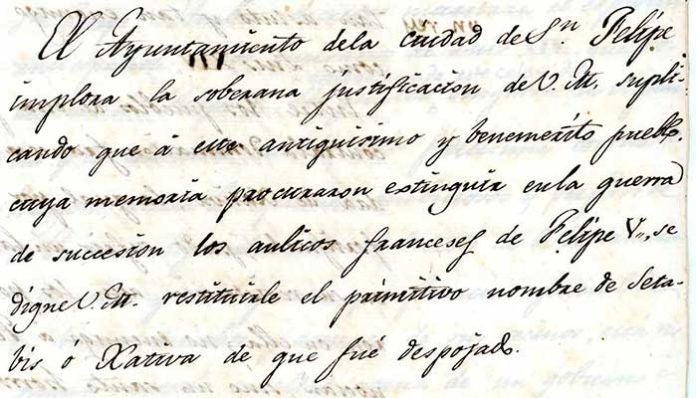 El Ayuntamiento dela ciudad de Sn. Felipe
implora la soberana justificacion de V. M. supli-
cando que á este antiquisimo y benemerito pueblo,
cuya memoria procuraron extinguir enla guerra
de succesion los aulicos franceses de Felipe V., se
digne V. M. restituirle el primitivo nombre de Seta-
bis ó Xativa de que fué despojado.